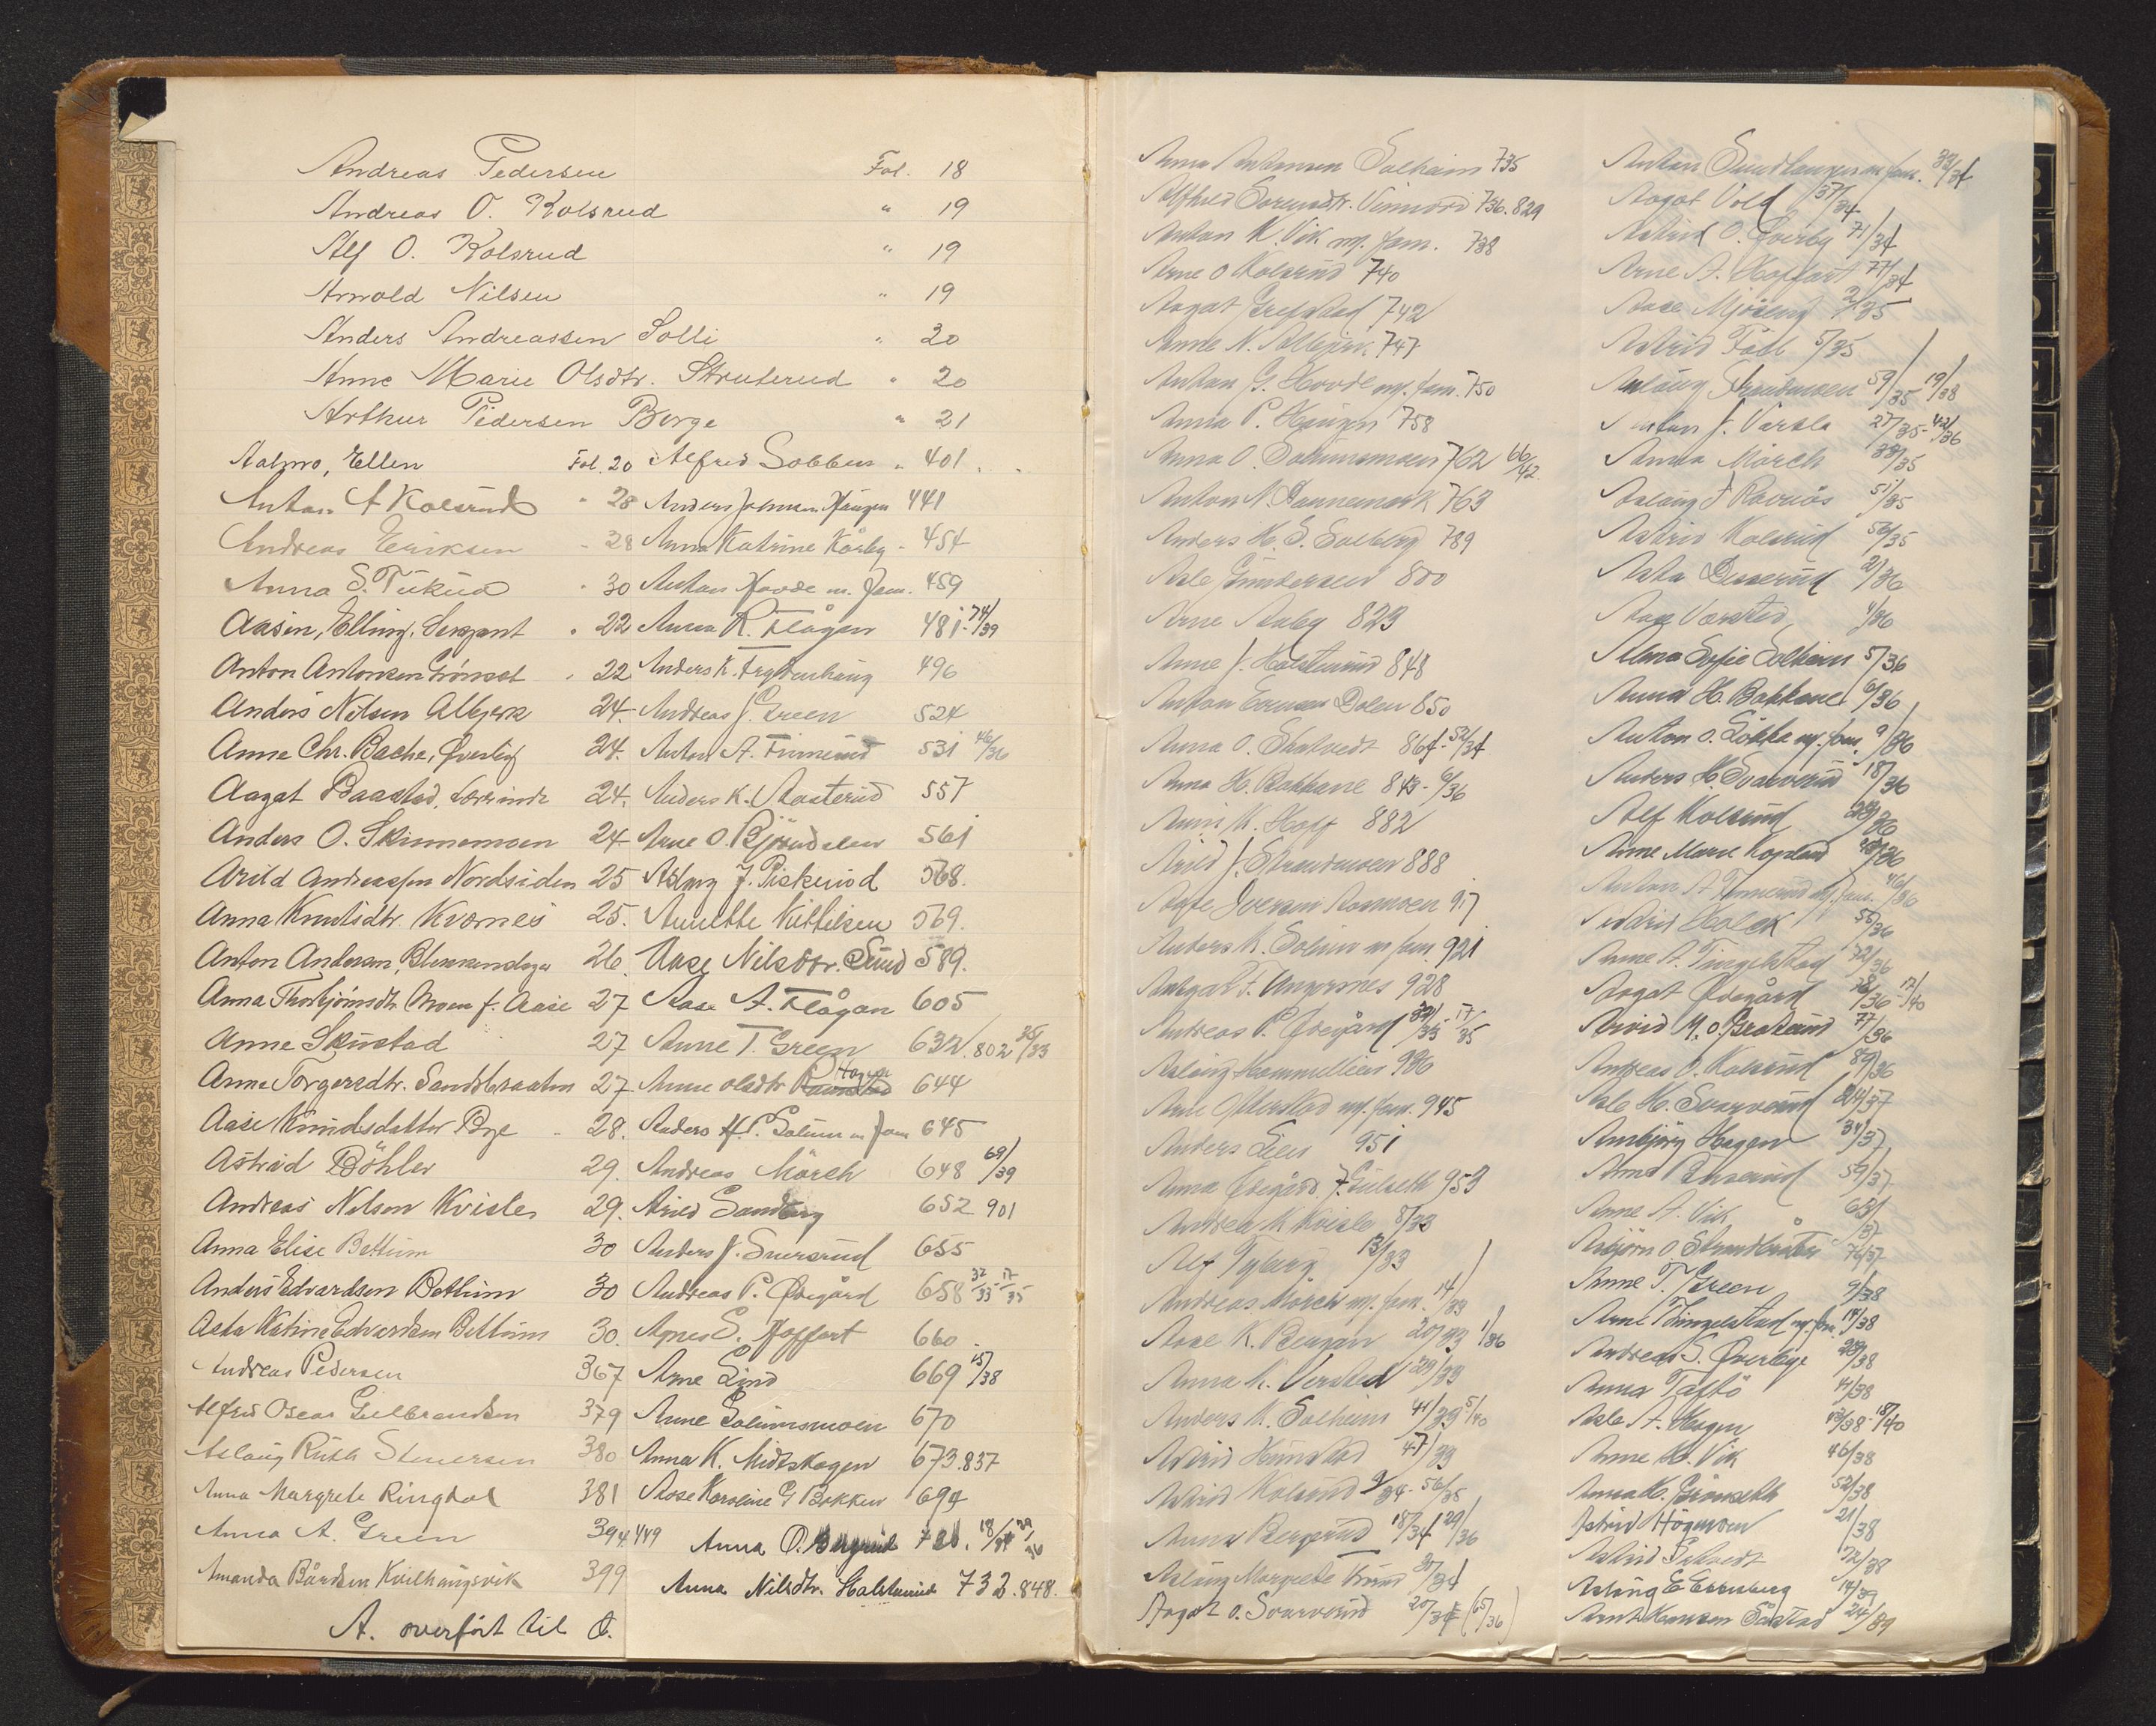 Andreas Pedersen Fol. 18
Andreas O. Kolsrud " 19
Alf O. Kolsrud " 19
Arnold Nilsen " 19
Anders Andreassen Solli " 20
Anne Marie Olsdtr. Struterud " 20
Arthur Pedersen Berge " 21
Aalmo, Ellen Fol. 20
Anton A Kolsrud " 28
Andreas Eriksen " 28
Anna S. " 30
Aasen, Elling, Sersjant " 22
Anton Antonsen " 22
Anders Nilsen Albjerk 24.
Anne Chr. Bache, Øverby 24.
Aagat Baastad, 24.
Anders O. Skinnemoen 24
Arild Andreassen Nordsiden 25
Anna Knutsdtr. Kvernes 25.
Anton Andersen, 26.
Anna Thorbjörnsdtr. Moen f. Aasie 27
Anne Skustad 27
Anne Torgersdtr. Sandsbraaten 27
Aase Knudsdatter Bye 28.
Astrid Böhler 29.
Andreas Nilsen Kvisle 29.
Anna Elise Bettum 30
Anders Edvardsen Bettum 30
Asta Katrine Edvardsen Bettum 30.
Andreas Pedersen 367
Alfred Oscar Gulbrandsen 379
Aslaug Ruth Stenersen 380
Anna Margrete Ringdal 381
Anna A. Green 394.449
Amanda Bårdsen Kvilhaugsvik 399
A. overfört til Q.
Alfred Sobben " 401
Anders Johnsen Haugen 441
Anna Katrine Kårby " 454
Anton Hovde m. fam. 459
Anna R. Flågan 481 - 74/39
Anders K. Frydenhaug 496
Andreas J. Green 524
Anton A. Finnerud 531 46/36
Anders K. Aasterud 557
Arne O. Björndalen 561
Aslaug J. Piskerud 568.
Annette Kittilsen 569.
Aase Nilsdtr. Sund 589.
Aase A. Flågan 605
Anne T. Green 632. 802
Anne Olsdtr. Hagen 644
Anders H. P. Solum m fam 645
Andreas Mörch 648 69/39
Arild Sandberg 652 901
Anders J. Snersrud 655
Andreas P. Ødegård 658 32/33 - 17/35
Agnes S. Hoffart 660
Arne Lund 669 15/38
Anne Solumsmoen 670
Anna K. Midtskogen 673.837
Aase Karoline G Bakken 694
Anna O. Bergerud 726. 18/34 29/36
Anna Nilsdtr. Halsteinrud 732.848.
Anna Antonsen Solheim 735
Alfhild Sorensdtr. 736.829
Anton K. Vik m. fam. 738
Arne O Kolsrud 740
Aagot Grefstad 742
Anne N. Albjerk 747
Anton G. Hovde m. fam. 750
Anna P. Haugen 758
Anna O. Solumsmoen 762 66/42
Anton N. Dannemark 763
Anders H. S. Solberg 789
Asle Gundersen 800
Arne Aaby 823
Anne J. Halsteinrud 848
Anton Dolen 850
Anna O. Skatvedt 864 - 52/34
Anna H. Bakkane 873 - 6/36
Anni K. Hoff 882
Arild J. Strandmoen 888
Aage Iversen Aamoen 917
Anders K. Solum m fam 921
928
Andreas P. Ødegård 32/33 - 17/35
Aslaug Hammellien 936
Arne Ofterstad m. fam. 945
Anders Lien 951
Anna Ødegård f. Gulseth 953
Andrea N Kvisle 8/33
Alf Tyberg 13/33
Andreas Mörch m. fam. 14/33
Aase K. Bergan 20/33 1/36
Anna K. Versted 29/33
Anders K. Solheim 41/33 5/40
Astrid Hunstad 47/33
Astrid Kolsrud 9/34 - 56/35
Anna Bergerud 18/34 29/36
Aslaug Margrete 20/34
Aagot O. Svarverud 20/34 (65/36)
Anton m. fam. 33/34
Aagot Vold 37/34
Astrid O. Øverby 71/34
Arne A. Hoffart 77/34
Aase Mjøseng 2/35
Astrid 5/35
Aslaug Strandmoen 59/35 19/38
Anton J. 27/35 - 42/36
Anna Mörch 38/35
Aslaug 51/35
Astrid Kolsrud 56/35
Asta Disserud 2/36
Aase Versted 4/36
Alma Sofie Solheim 5/36
Anna H. Bakkane 6/36
Anton O. Lökka m. fam. 9/36
Anders H. Svarverud 18/36
Alf Kolsrud 24/36
Anne Marie Kopland
Anton A Finnerud m. fam. 46/36
Holck 55/36
Anne A. Tingelstad 72/36
Aagot Ødegård 76/36 - 17/40
Arvid M. O. 77/36
Andreas O. Kolsrud 89/36
Asle H. Svarverud 24/37
Annbjörg Hagen 34/37
Anna 59/37
Anne A. Vik 63/37
Asbjörn O Strandbråten 76/37
Anne T. Green 9/38
Arne Tingelstad m. fam. 14/38
Andreas S. Øverbye 29/38
Anna Taftö 41/38
Asle A. Hagen 43/38 - 18/40
Anne H. Vik 46/38
Anna K. Grönseth 52/38
Astrid Högmoen 21/38
Astrid 72/38
Aslaug E 14/39
Arnt Hansen 24/39